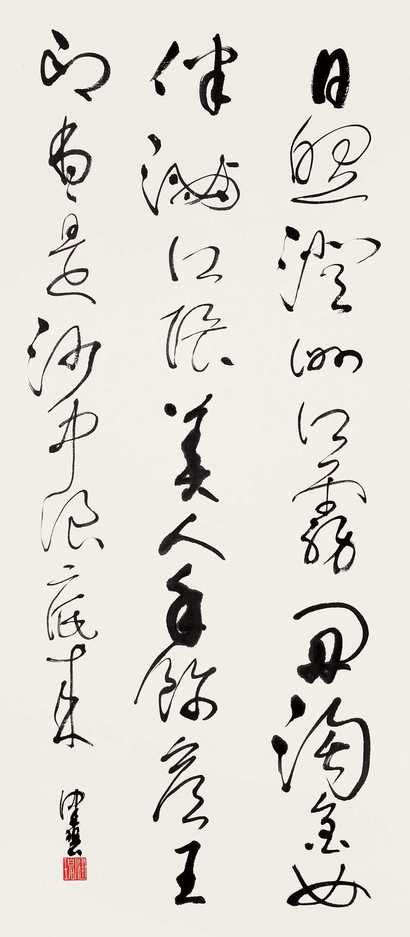 日照澄洲江霧開淘金女
伴滿江隈美人首飾侯王
印盡是沙中浪底來